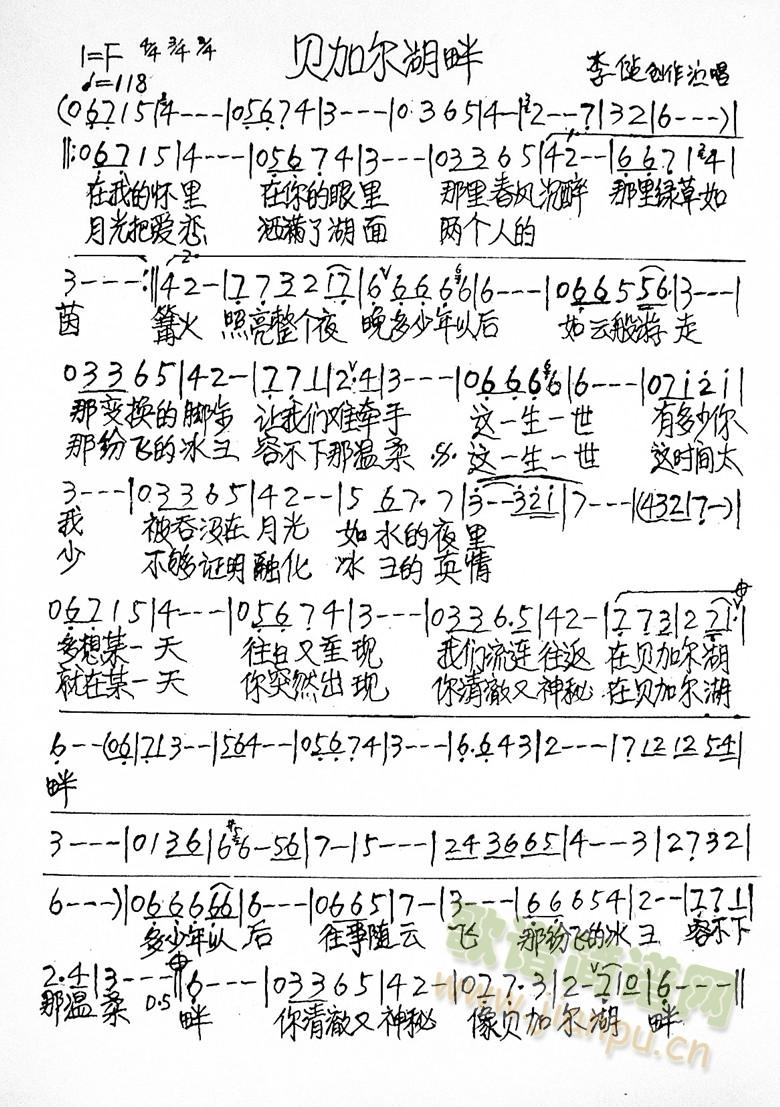 贝加尔湖畔
1=F 4/4 3/4 2/4
♩=118
李健创作演唱
(0 6 7 1 5 | 4 - - - | 0 5 6 7 4 | 3 - - - | 0 3 6 5 | 4 - | 2 - - 7 | 3 2 | 6 - - - ) |
||: 0 6 7 1 5 | 4 - - - | 0 5 6 7 4 | 3 - - - | 0 3 3 6 5 | 4 2 - - | 6 6 7 | 4 |
在我的怀里 在你的眼里 那里春风沉醉 那里绿草如
月光把爱恋 洒满了湖面 两个人的
3 - - - :|| 4 2 - | 7 7 3 2 1 7 | 6 6 6 6 6 | 6 - - - | 0 6 6 5 5 6 | 3 - - - |
茵 篝火 照亮整个夜 晚多少年以后 如云般游走
0 3 3 6 5 | 4 2 - | 7 7 1 | 2 · 4 | 3 - - - | 0 6 6 6 6 | 6 - - - | 0 7 1 2 1 |
那变换的脚步 让我们难牵手 这一生一世 有多少你
那纷飞的冰玉 容不下那温柔 𝄋 这一生一世 这时间太
3 - - - | 0 3 3 6 5 | 4 2 - - | 5 6 7 · 7 | 3 - - 3 2 1 | 7 - - - | (4 3 2 | 7 - ) |
我 被吞没在月光 如水的夜里
少 不够证明融化 冰玉的真情
0 6 7 1 5 | 4 - - - | 0 5 6 7 4 | 3 - - - | 0 3 3 6 · 5 | 4 2 - | 7 7 3 | 2 7 1 · |
多想某一天 往日又重现 我们流连往返 在贝加尔湖
就在某一天 你突然出现 你清澈又神秘 在贝加尔湖
6 - - (0 6 | 7 1 3 - - | 5 6 4 - - | 0 5 6 7 4 | 3 - - - | 6 · 6 4 3 | 2 - - - | 7 1 2 1 2 5 4 |
畔
3 - - - - | 0 1 3 6 | 6 6 - 5 6 | 7 - | 5 - - - | 2 4 3 6 6 5 | 4 - - 3 | 2 7 3 2 |
6 - - - ) | 0 6 6 6 6 6 | 6 - - - | 0 6 6 5 | 7 - | 3 - - - | 6 6 6 5 4 | 2 - - | 7 7 1 |
多少年以后 往事随云飞 那纷飞的冰玉 容不下
2 · 4 | 3 - - - - || 6 - - - | 0 3 3 6 5 | 4 2 - | 0 7 7 · 3 | 2 - 7 1 0 | 6 - - - ||
那温柔 D.S 畔 你清澈又神秘 像贝加尔湖畔
歌谱简谱网
www.jianpu.cn